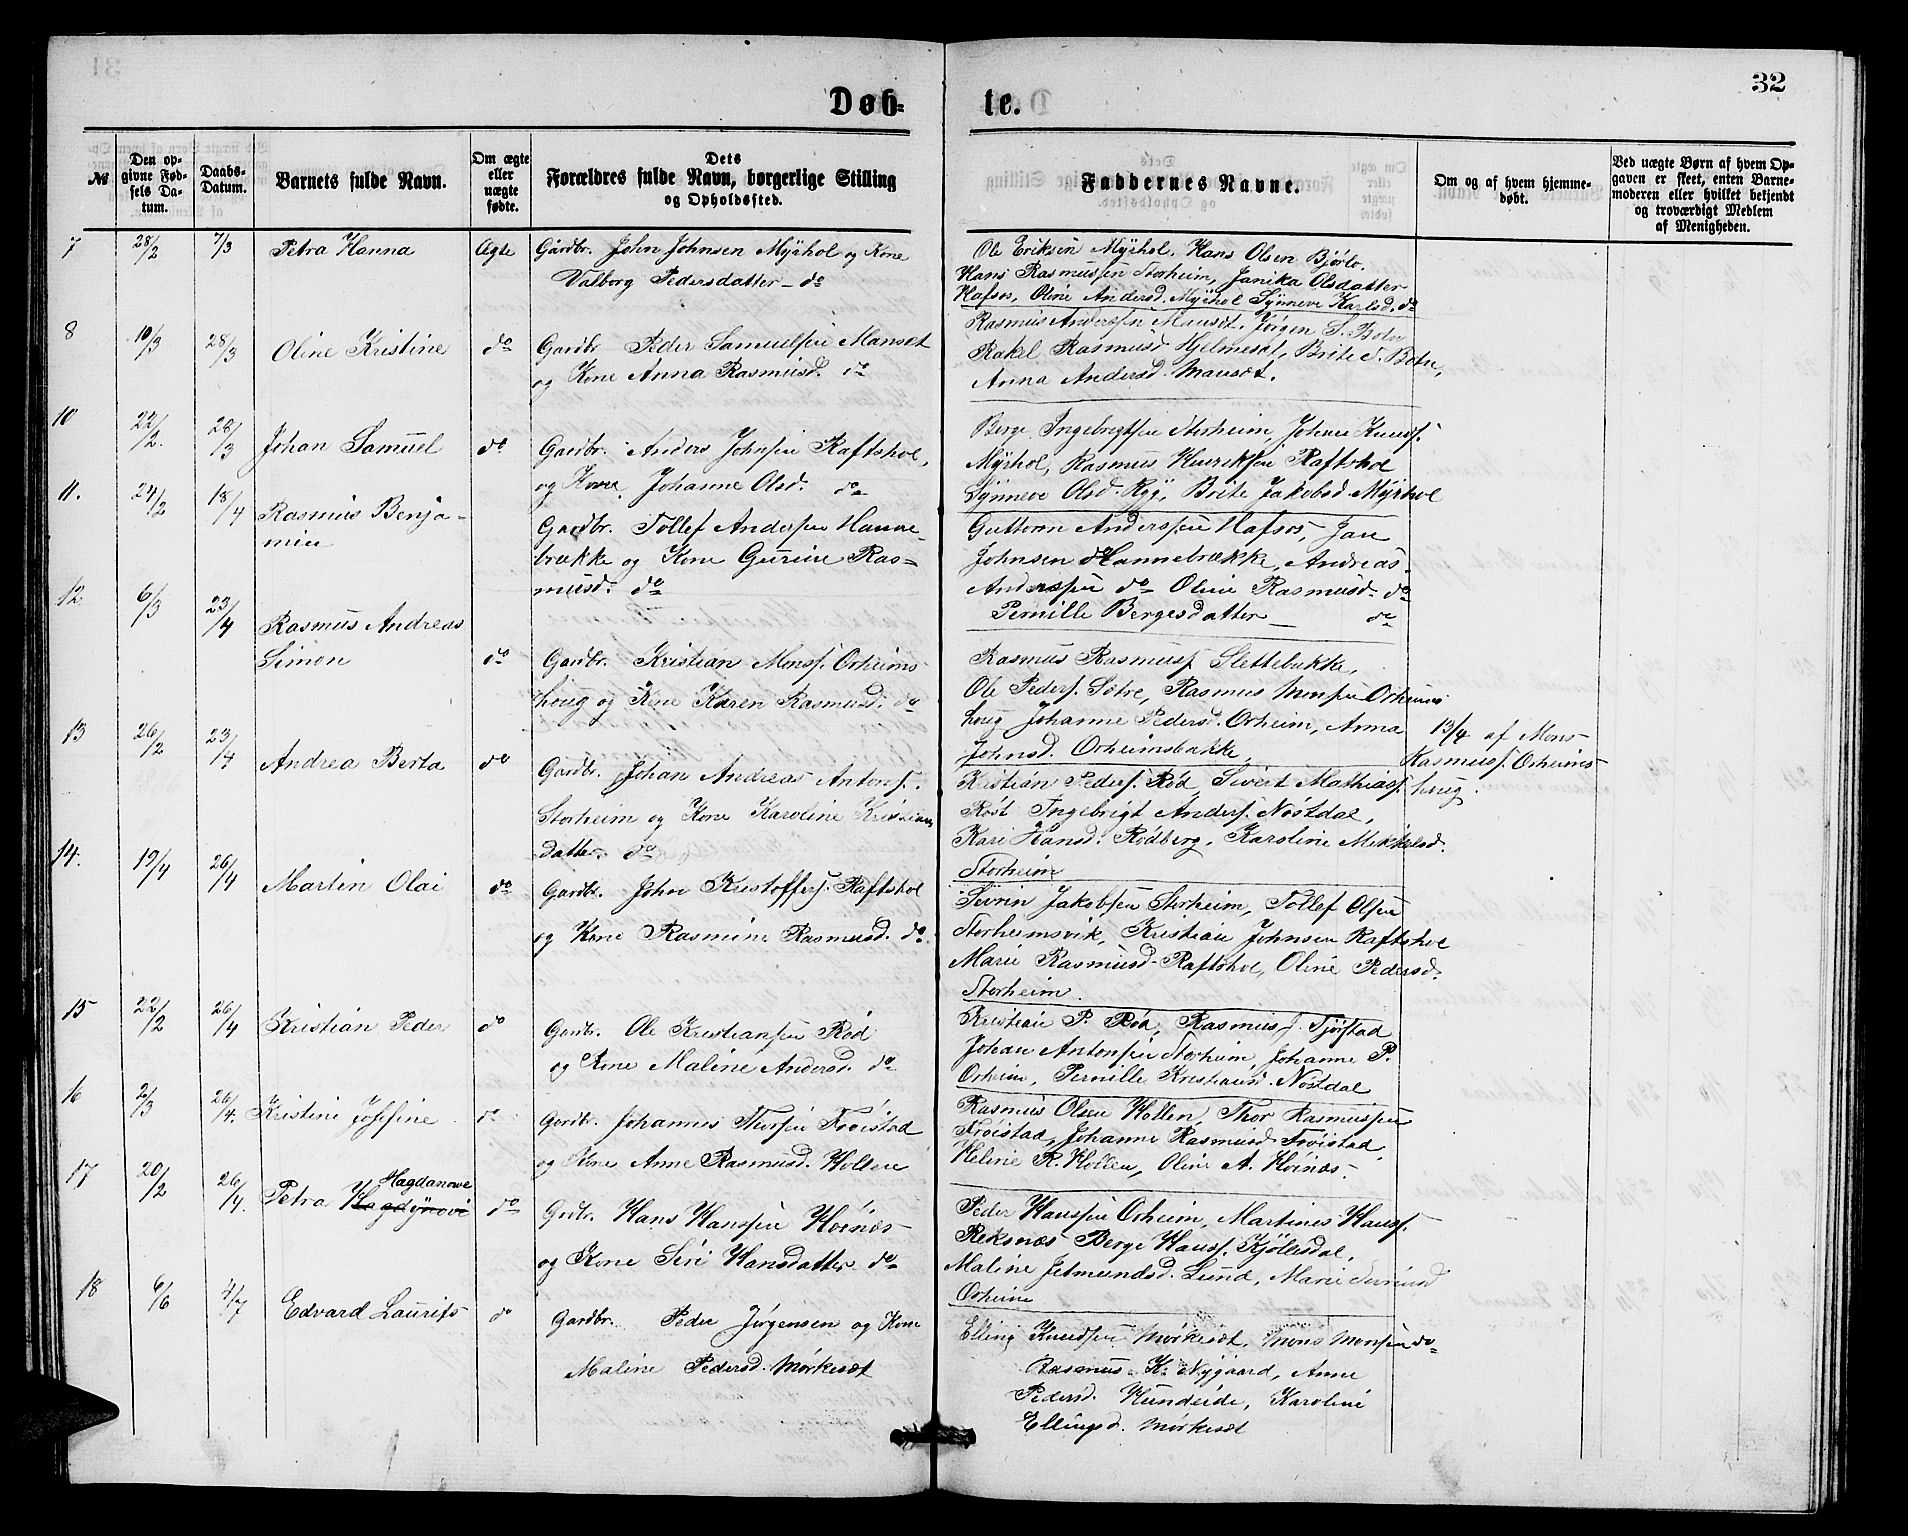 32
Døb-
te.
№
Den op-
givne Fød-
sels Da-
tum.
Daabs-
Datum.
Barnets fulde Navn.
Om ægte
eller
uægte
fødte.
Dets
Forældres fulde Navn, borgerlige Stilling
og Opholdssted.
Faddernes Navne.
Om og af hvem hjemme-
døbt.
Ved uægte Børn af hvem Op-
gaven er skeet, enten Barne-
moderen eller hvilket bekjendt
og troværdigt Medlem
af Menigheden.
7 28/2 7/3 Petra Hanna Ægte
Gårdbr. John Johnsen Myrhol og Kone
Valborg Pedersdatter - do
Ole Eriksen Myrhol. Hans Olsen Bjørlo.
Hans Rasmussen Storheim, Janika Olsdatter
Hafsos, Oline Andersd. Myrhol Synneve Karlsd. do
8 10/3 28/3 Oline Kristine do
Gardbr Peder Samuelsen Mansæt
og Kone Anna Rasmusd. do
Rasmus Andersen Mansæt. Jørgen S. Botn
Rakel Rasmusd Hjelmesæt, Brite S. Botn,
Anna Andersd. Mansæt.
10 22/2. 28/3 Johan Samuel do
Gardbr. Anders Johnsen Raftshol,
og Kone Johanne Olsd. do
Berge Ingebrigtsen Storheim, Johan Knuds.
Myrhol, Rasmus Henriksen Raftshol
Synneve Olsd. Ryg, Brite Jakobsd. Myrhol
11. 24/2 18/4 Rasmus Benja-
min
Gardbr. Tollef Andersen Hanne-
brække og Kone Gurine Ras-
musd. do
Guttorm Anderssen Hafsos, Jan
Johnsen Hannebrække, Andreas
Anderssen do Oline Rasmusd. do
Pernille Bergesdatter do
12 6/3 23/4 Rasmus Andreas
Simon do
Gardbr. Kristian Mons. Orheims-
houg og Kone Karen Rasmusd. do
Rasmus Rasmuss Slettebakke,
Ole Peders. Sætre, Rasmus Monsen Orheims
houg Johanne Pedersd. Orheim, Anna
Johnsd. Orheimsbakke,
13/4 af Mons
Rasmuss. Orheims-
houg.
13 26/2 23/4 Andrea Berta do
Gardbr. Johan Andreas Antons.
Storheim og Kone Karoline Kristians
datter. do
Kristian Peders. Rød, Sivert Mathiass.
Røst Ingebrigt Anders. Nøstdal,
Kari Hansd. Rødberg, Karoline Mikkelsd.
Storheim
14. 19/4 26/4 Martin Olai do
Gardbr. John Kristoffers. Raftshol
og Kone Rasmine Rasmusd. do.
Sivrin Jakobsen Storheim, Tollef Olsen
Storheimsvik, Kristian Johnsen Raftshol
Marie Rasmusd. Raftshol, Oline Pedersd.
Storheim.
15 22/2 26/4 Kristian Peder do
Gardbr. Ole Kristiansen Rød
og Kone Maline Andersd. do
Kristian P. Rød, Rasmus J. Tjørstad
Johan Antonsen Storheim, Johanne P.
Orheim, Pernille Kristiansd. Nøstdal
16 2/3 26/4. Kristine Josefine do
Gardbr. Johannes Thorsen Frøistad
og Kone Anne Rasmusd. Holten
Rasmus Olsen Hollen, Thor Rasmussen
Frøistad, Johanne Rasmusd. Frøistad,
Heline R. Hollen, Oline A. Hoinæs.
17 20/2 26/4. Petra Hagdanowe
do
Grdbr. Hans Hanssen Hoinæs
og Kone Siri Hansdatter do
Peder Hanssen Orheim, Martines Hanss.
Reksnæs Berge Hanss. Kjølesdal.
Maline Jetmundsd. Lund, Marie Sevrinsd
Orheim
18 6/6 4/7 Edvard Laurits do
Gardbr. Peder Jørgensen og Kone
Maline Pedersd. Mørkesæt
Elling Knudsen Mørkesæt, Mons Monsen do
Rasmus K. Nygaard, Anne
Pedersd. Hundeide, Karoline
Ellingsd. Mørkesæt